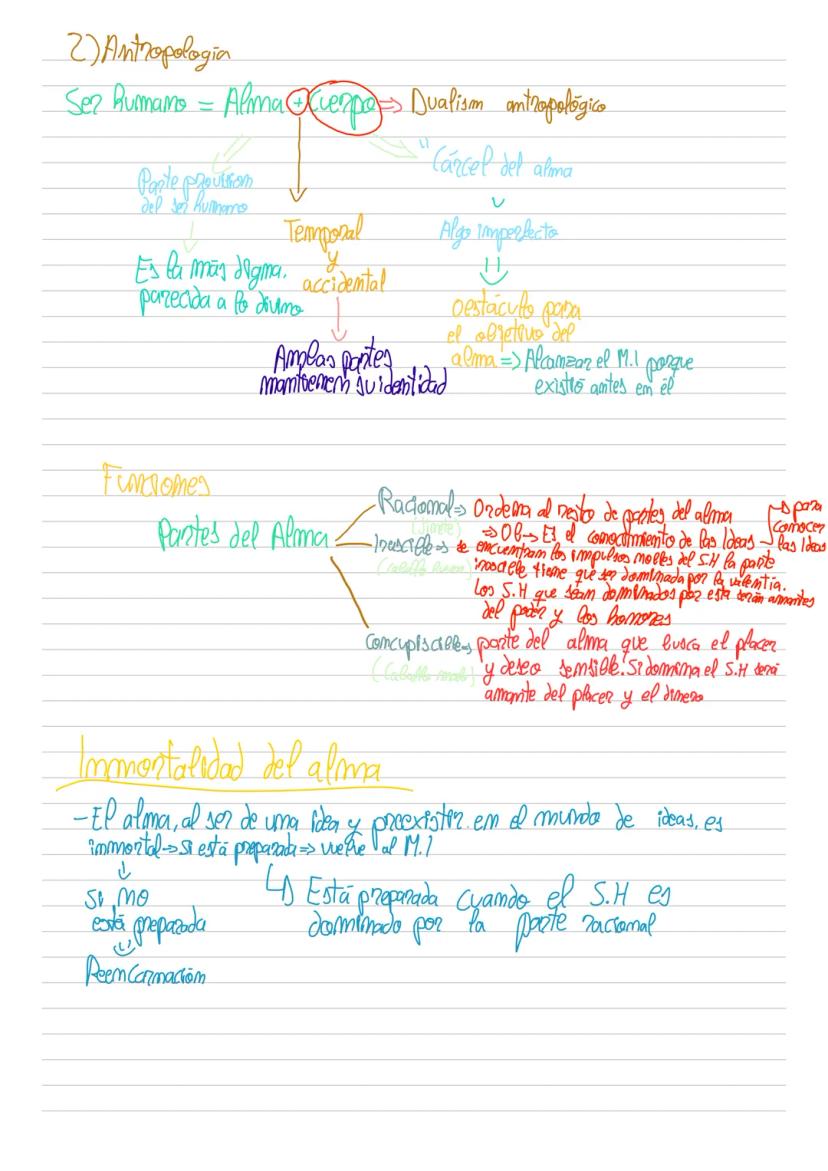 2) Antropología
Ser humano = Alma + Cuerpo => Dualism antropológico
"Cárcel del alma
Parte
del ser humano
Es la más digna,
parecida a lo divino
Temporal
y
accidental
Ambas partes
mantienen su identidad
Algo imperfecto
Obstáculo para
el objetivo del
alma => Alcanzar el M.I porque
existió antes en él
Funciones
Partes del Alma
Racional => Ordena al resto de partes del alma
(Jinete)
=> Ob -> Es el conocimiento de las Ideas
-> para
conocer
las Ideas
Irascible => se encuentran los impulsos nobles del S.H la parte
(caballo bueno)
irascible tiene que ser dominada por la valentía.
Los S.H que sean dominados por esta serán amantes
del poder y los honores
Concupiscible => parte del alma que busca el placer
(Caballo malo)
y deseo sensible. Si domina el S.H será
amante del placer y el dinero
Inmortalidad del alma
- El alma, al ser de una idea y preexistir en el mundo de ideas, es
inmortal -> si está preparada => vuelve al M.I
Si no
está preparada
Reencarnación
Está preparada cuando el S.H es
dominado por la parte racional